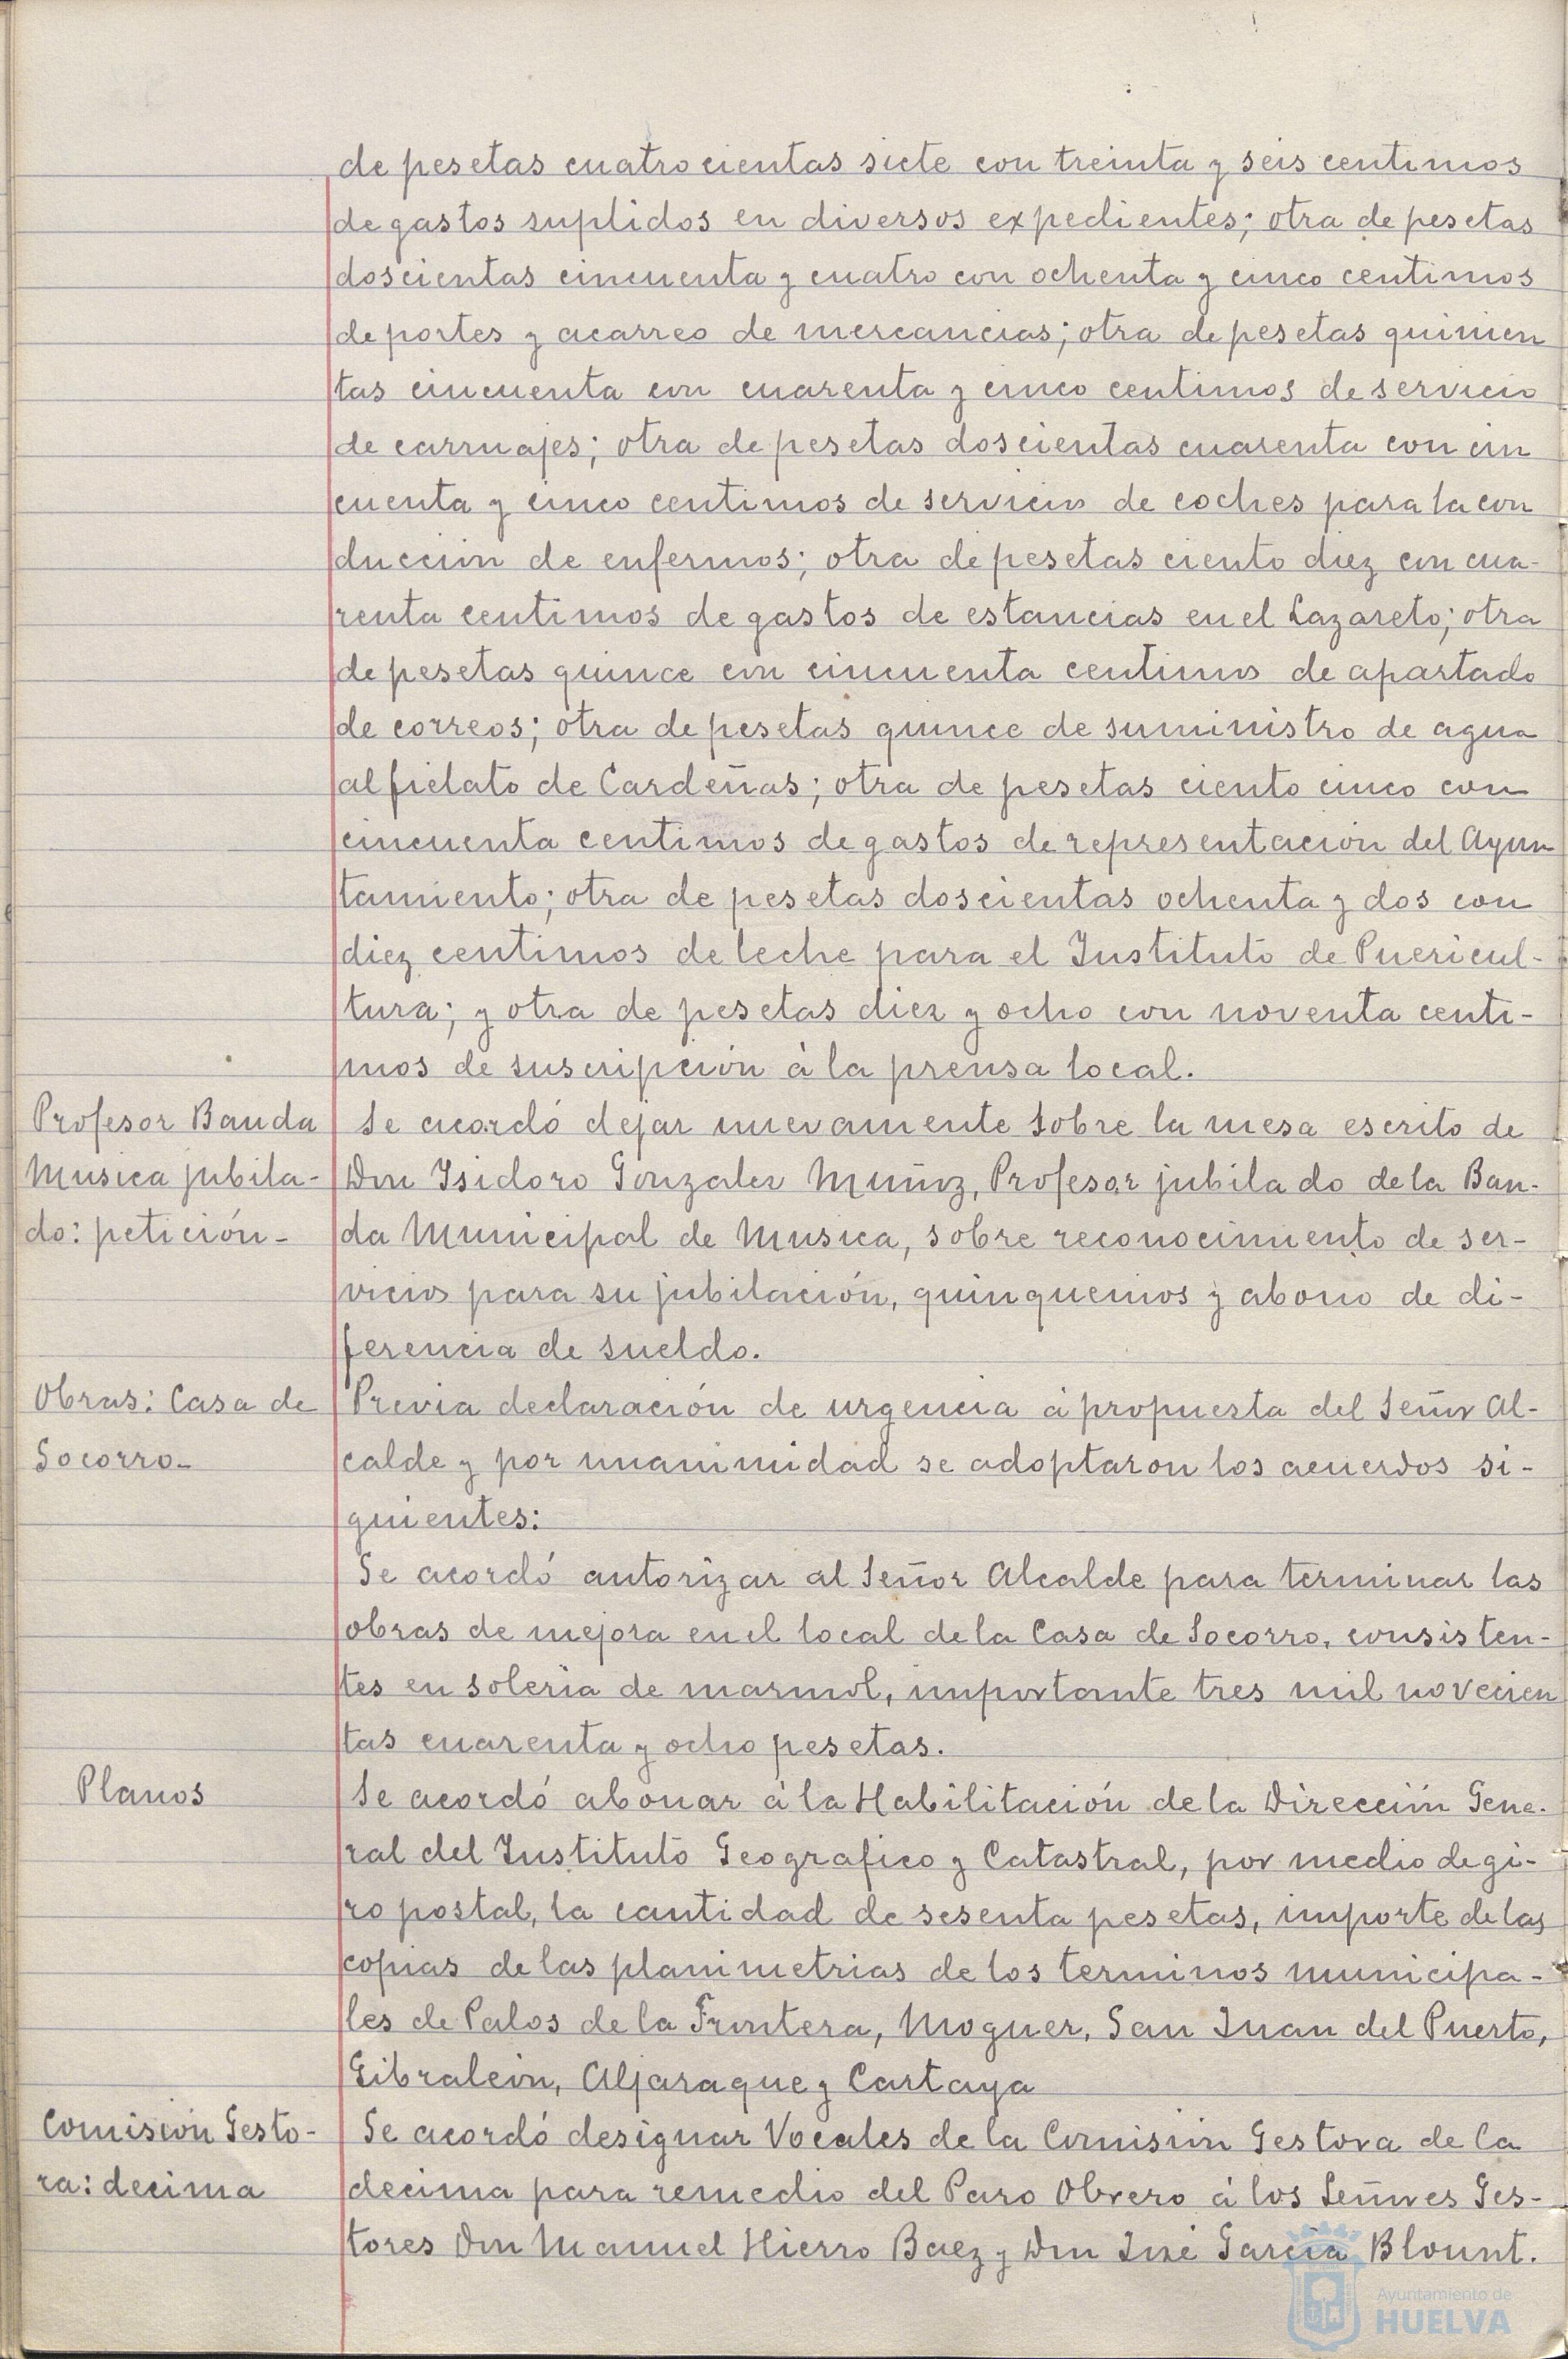 de pesetas cuatrocientas siete con treinta y seis centimos
de gastos suplidos en diversos expedientes; otra de pesetas
doscientas cincuenta y cuatro con ochenta y cinco centimos
de portes y acarreo de mercancias; otra de pesetas quinien
tas cincuenta con cuarenta y cinco centimos de servicio
de carruajes; otra de pesetas doscientas cuarenta con cin
cuenta y cinco centimos de servicio de coches para la con
duccion de enfermos; otra de pesetas ciento diez con cua-
renta centimos de gastos de estancias en el Lazareto; otra
de pesetas quince con cincuenta centimos de apartado
de correos; otra de pesetas quince de suministro de agua
al fielato de Cardeñas; otra de pesetas ciento cinco con
cincuenta centimos de gastos de representación del Ayun
tamiento; otra de pesetas doscientas ochenta y dos con
diez centimos de leche para el Instituto de Puericul-
tura; y otra de pesetas diez y ocho con noventa centi-
mos de suscripción à la prensa local.
Profesor Banda
Musica jubila-
do: petición-
Se acordó dejar nuevamente sobre la mesa escrito de
Don Isidoro Gonzalez Muñoz, Profesor jubilado de la Ban-
da Municipal de Musica, sobre reconocimiento de ser-
vicios para su jubilación, quinquenios y abono de di-
ferencia de sueldo.
Obras: Casa de
Socorro-
Previa declaración de urgencia à propuesta del Señor Al-
calde y por unanimidad se adoptaron los acuerdos si-
guientes:
Se acordó autorizar al Señor Alcalde para terminar las
obras de mejora en el local de la Casa de Socorro, consisten-
tes en soleria de marmol, importante tres mil novecien
tas cuarenta y ocho pesetas.
Planos
Se acordó abonar à la Habilitación de la Dirección Gene-
ral del Instituto Geografico y Catastral, por medio de gi-
ro postal, la cantidad de sesenta pesetas, importe de las
copias de las planimetrias de los terminos municipa-
les de Palos de la Frontera, Moguer, San Juan del Puerto,
Gibraleon, Aljaraque y Cartaya
Comisión Gesto-
ra: decima
Se acordó designar Vocales de la Comisión Gestora de la
decima para remedio del Paro Obrero à los Señores Ges-
tores Don Manuel Hierro Baez y Don José Garcia Blount.
Ayuntamiento de
HUELVA